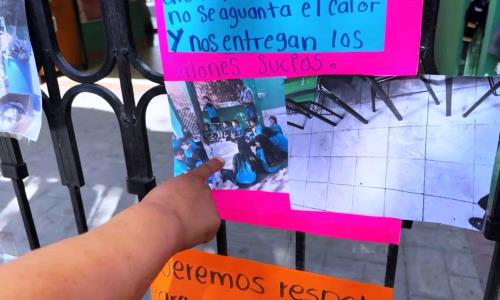 no se aguanta el calor
Y nos entregan los
salones sucios.
Queremos respet